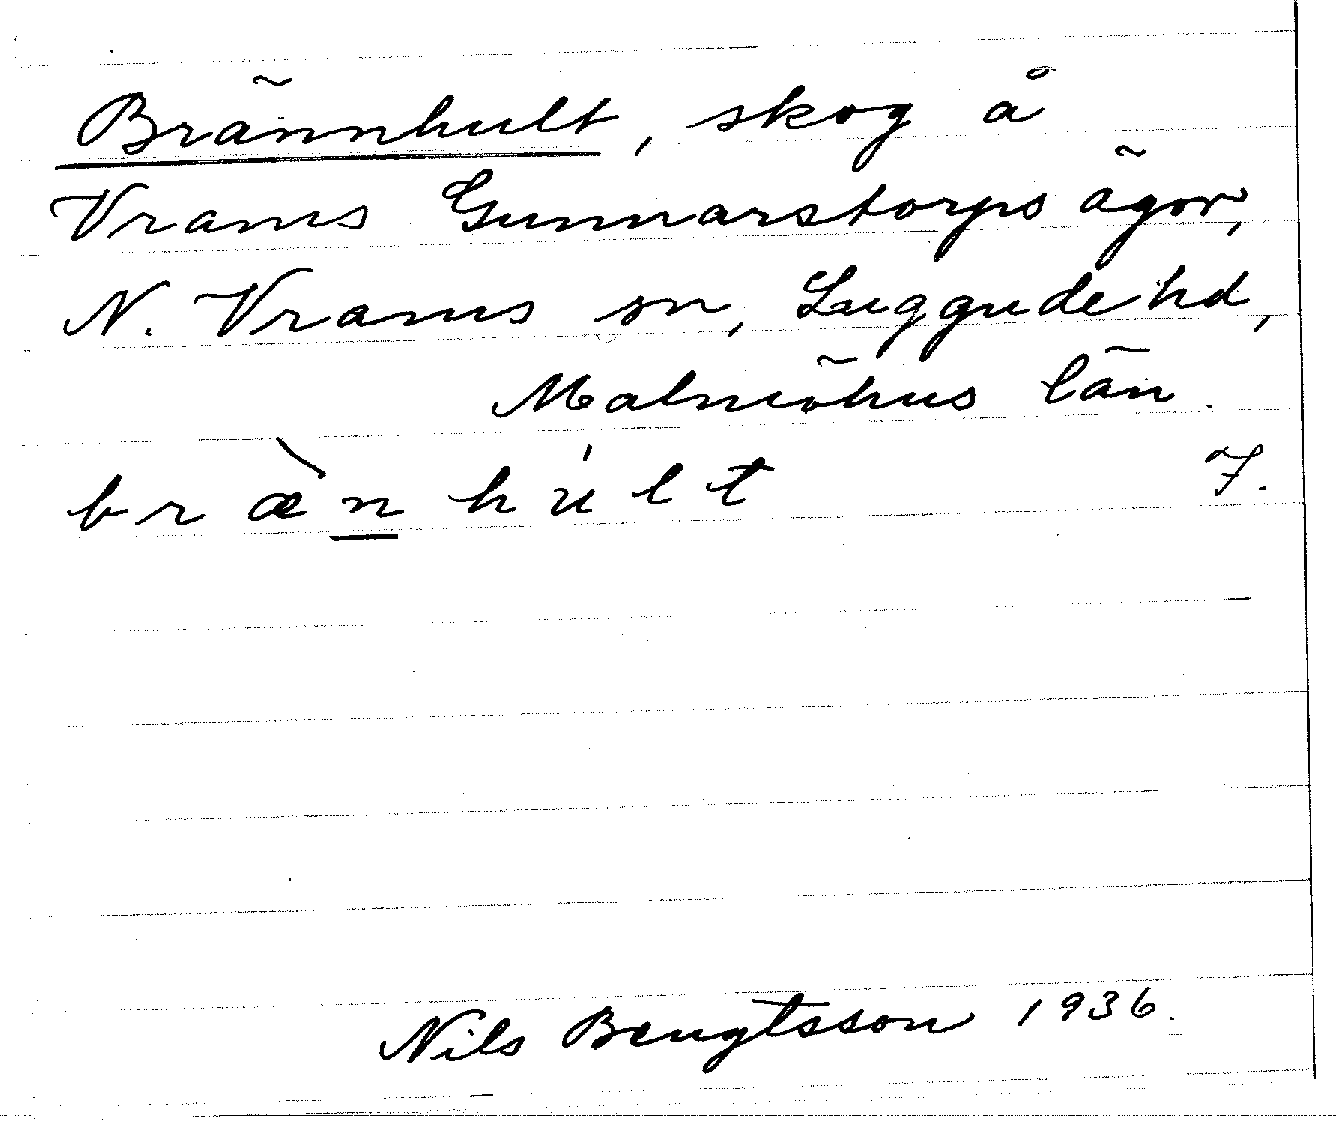 Brännhult, skog å
Vrams Gunnarstorps ägor,
N. Vrams sn, Luggude hd,
Malmöhus län.
bræ̀nhúlt 7.
Nils Bengtsson 1936.